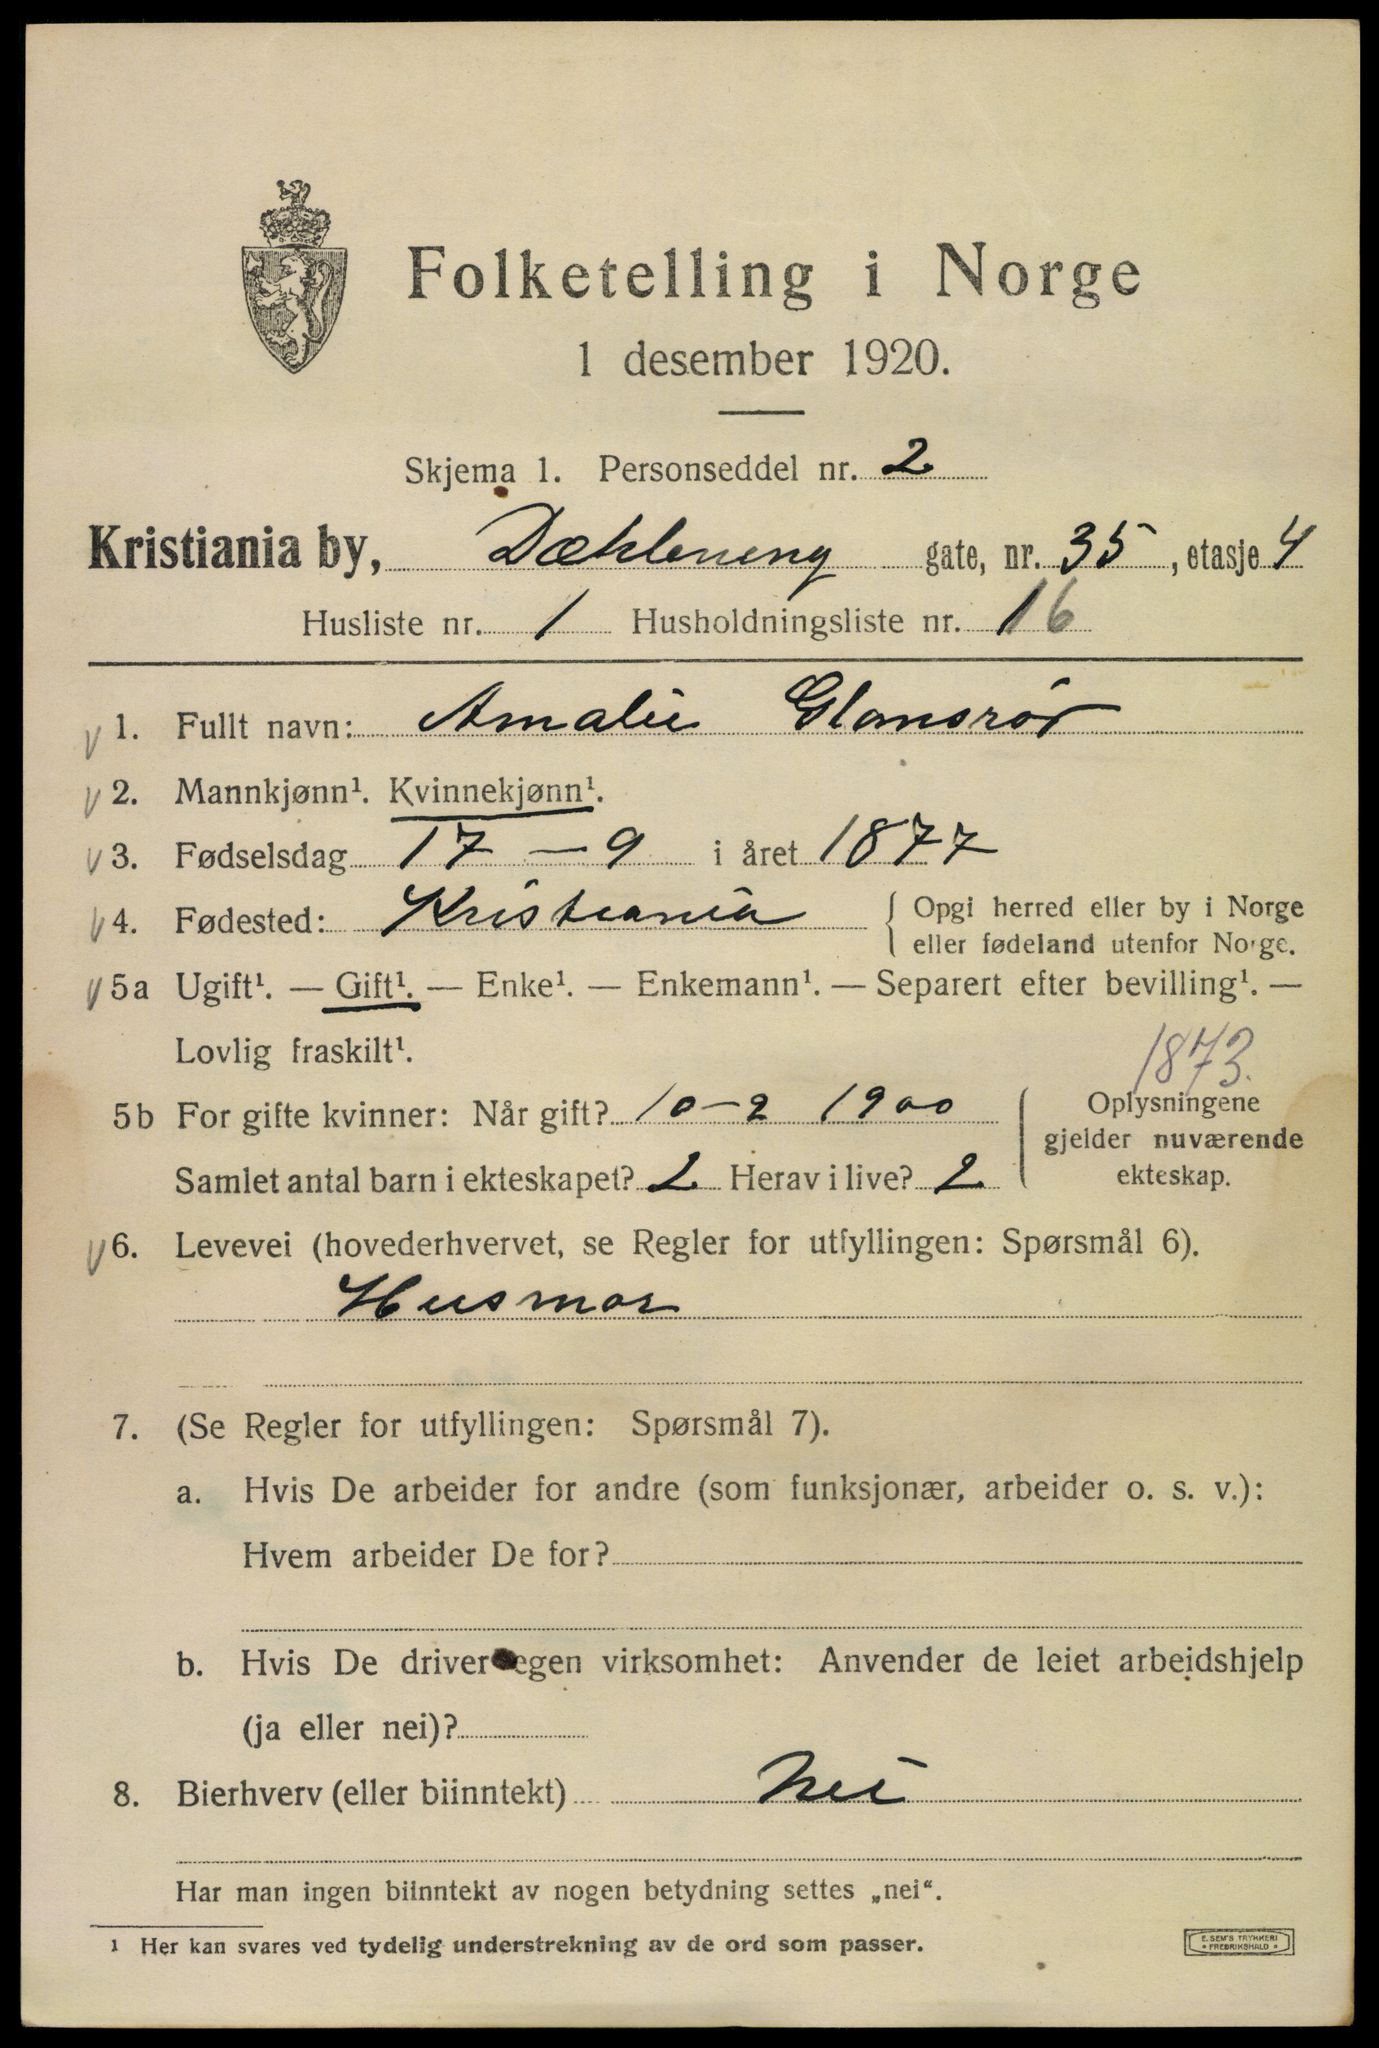 Folketelling i Norge
1 desember 1920.
Skjema 1. Personseddel nr. 2
Kristiania by, Dæhleneng gate, nr. 35, etasje 4
Husliste nr. 1 Husholdningsliste nr. 16
1. Fullt navn: Amalie Glomsrör
2. Mannkjønn¹. Kvinnekjønn¹.
3. Fødselsdag 17 – 9 i året 1877
4. Fødested: Kristiania { Opgi herred eller by i Norge
eller fødeland utenfor Norge.
5a Ugift¹. — Gift¹. — Enke¹. — Enkemann¹. — Separert efter bevilling¹. —
Lovlig fraskilt¹.
1873.
5b For gifte kvinner: Når gift? 10–2 1900 { Oplysningene
gjelder nuværende
Samlet antal barn i ekteskapet? 2 Herav i live? 2 ekteskap.
6. Levevei (hovederhvervet, se Regler for utfyllingen: Spørsmål 6).
Husmor
7. (Se Regler for utfyllingen: Spørsmål 7).
a. Hvis De arbeider for andre (som funksjonær, arbeider o. s. v.):
Hvem arbeider De for?
b. Hvis De driver egen virksomhet: Anvender de leiet arbeidshjelp
(ja eller nei)?
8. Bierhverv (eller biinntekt) Nei
Har man ingen biinntekt av nogen betydning settes „nei“.
¹ Her kan svares ved tydelig understrekning av de ord som passer.
E. SEM'S TRYKKERI
* FREDRIKSHALD *